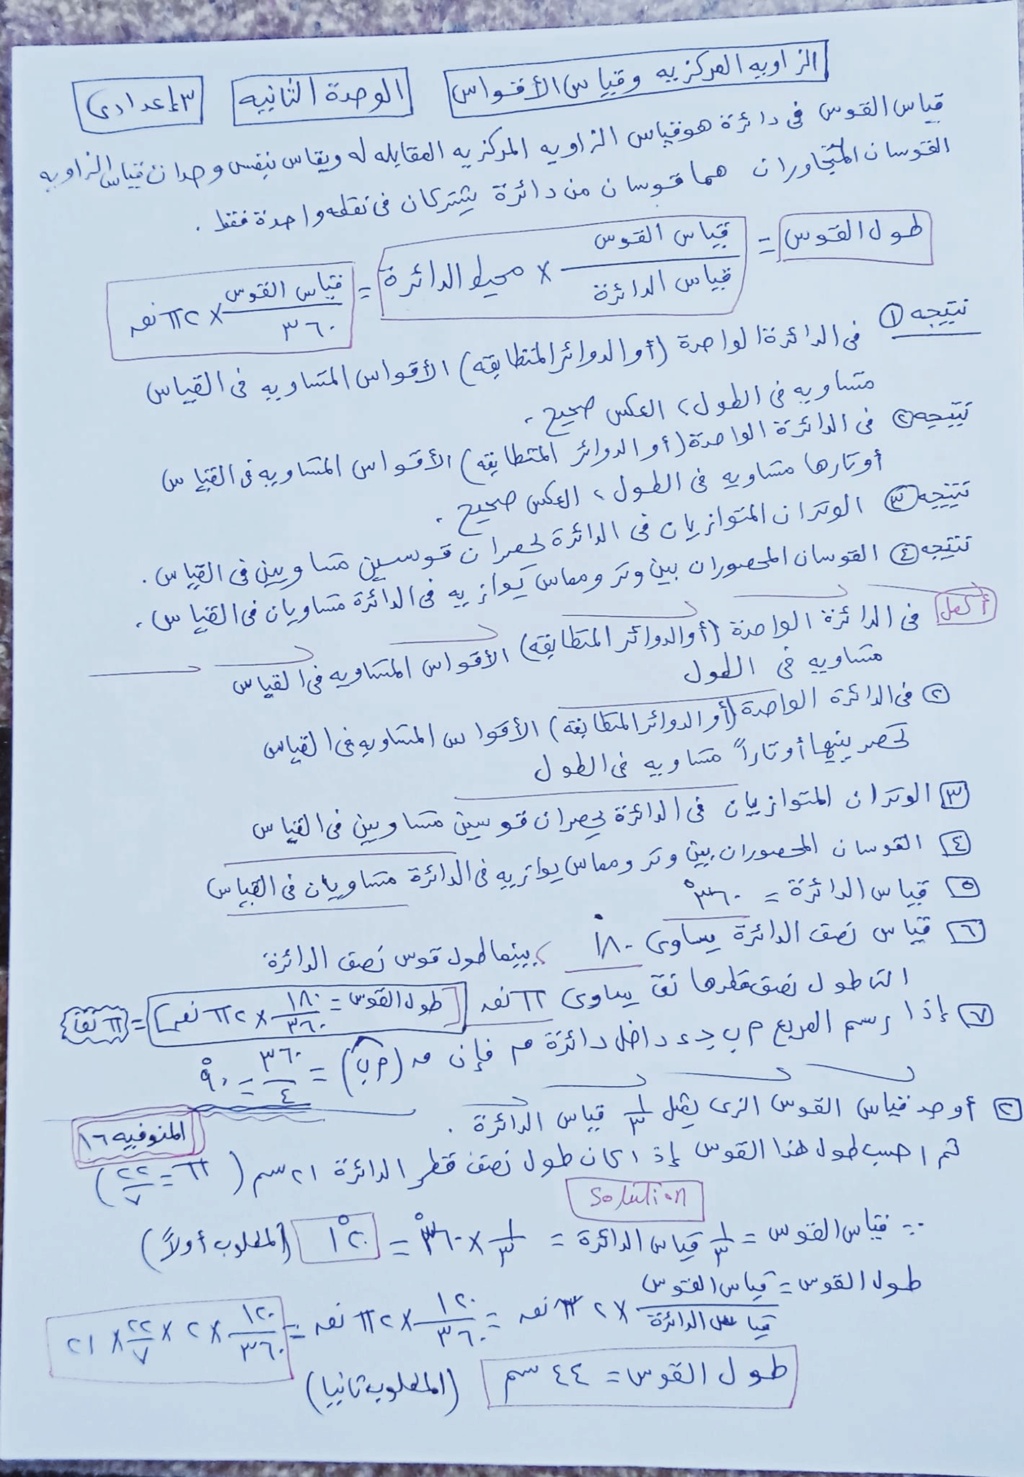 الزاويه المركزيه وقياس الأقواس الوحدة الثانيه ٣ إعدادى
قياس القوس فى دائرة هو قياس الزاويه المركزيه المقابله له ويقاس بنفس وحدات قياس الزاويه
القوسان المتجاوران هما قوسان من دائرة يشتركان فى نقطه واحدة فقط .
طول القوس = قياس القوس / قياس الدائرة × محيط الدائرة = قياس القوس / ٣٦٠ × ٢ π نص
نتيجه ① فى الدائرة الواحدة (أو الدوائر المتطابقه) الأقواس المتساويه فى القياس
متساويه فى الطول، العكس صحيح .
نتيجه ② فى الدائرة الواحدة (أو الدوائر المتطابقه) الأقواس المتساويه فى القياس
أوتارها متساويه فى الطول، العكس صحيح .
نتيجه ③ الوتران المتوازيان فى الدائرة يحصران قوسين متساويين فى القياس .
نتيجه ④ القوسان المحصوران بين وتر ومماس يوازيه فى الدائرة متساويان فى القياس .
أكمل فى الدائرة الواحدة (أو الدوائر المتطابقه) الأقواس المتساويه فى القياس
متساويه فى الطول
② فى الدائرة الواحدة (أو الدوائر المتطابقه) الأقواس المتساويه فى القياس
تحصر بينها أوتاراً متساويه فى الطول
٣ الوتران المتوازيان فى الدائرة يحصران قوسين متساويين فى القياس
٤ القوسان المحصوران بين وتر ومماس يوازيه فى الدائرة متساويان فى القياس
٥ قياس الدائرة = ٣٦٠°
٦ قياس نصف الدائرة يساوى ١٨٠° ، بينما طول قوس نصف الدائرة
التى طول نصف قطرها نق يساوى π نق طول القوس = ١٨٠ / ٣٦٠ × ٢ π نق = π نق
٧ إذا رسم المربع م ب ج ء داخل دائرة م فإن ق (م ب) = ٣٦٠ / ٤ = ٩٠°
٢ أوجد قياس القوس الذى يمثل ١/٣ قياس الدائرة . المنوفيه ١٦
ثم احسب طول هذا القوس إذا كان طول نصف قطر الدائرة ٢١ سم (π = ٢٢/٧)
Solution
∵ قياس القوس = ١/٣ قياس الدائرة = ١/٣ × ٣٦٠° = ١٢٠° (المطلوب أولاً)
طول القوس = قياس القوس / قياس الدائرة × ٢ π نق = ١٢٠ / ٣٦٠ × ٢ π نق = ١٢٠ / ٣٦٠ × ٢ × ٢٢/٧ × ٢١
طول القوس = ٤٤ سم (المطلوب ثانيا)